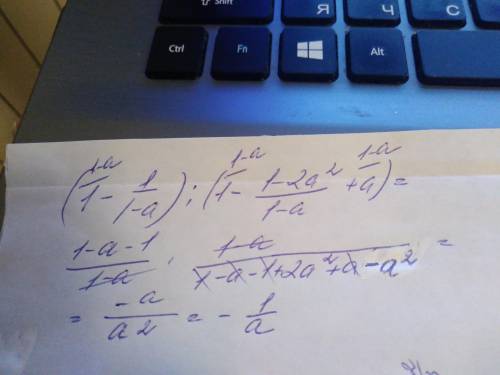 Shift
Я Ч С
Ctrl Fn Alt
1-a 1-a 1-a
(1 - 1/(1-a)) : (1 - (1-2a²)/(1-a) + a) =
(1-a-1)/(1-a) · (1-a)/(1-a-1+2a²+a-a²) =
= -a/a² = - 1/a